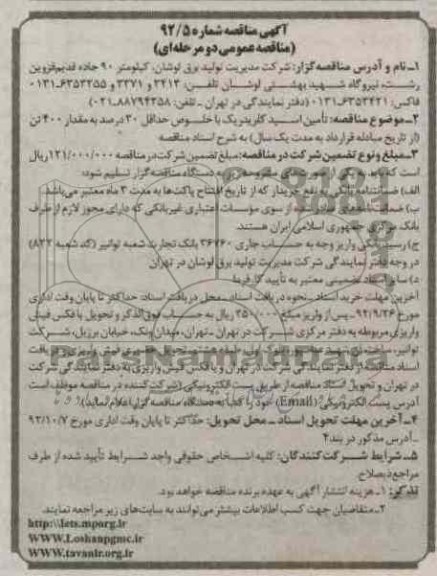 آگهی مناقصه شماره ۹۲/۵
(مناقصه عمومی دو مرحله‌ای)
۱ـ نام و آدرس مناقصه‌گزار: شرکت مدیریت تولید برق لوشان، کیلومتر ۹۰ جاده قدیم قزوین
رشت، نیروگاه شهید بهشتی لوشان تلفن: ۲۴۱۳ و ۳۳۷۱ و ۶۳۵۳۲۵۵-۰۱۳۱
فاکس: ۶۳۵۳۴۲۱-۰۱۳۱ (دفتر نمایندگی در تهران ـ تلفن: ۸۸۷۹۴۳۵۸-۰۲۱)
۲ـ موضوع مناقصه: تأمین اسید کلریدریک با خلوص حداقل ۳۰ درصد به مقدار ۴۰۰ تن
(از تاریخ مبادله قرارداد به مدت یک سال) به شرح اسناد مناقصه
۳ـ مبلغ و نوع تضمین شرکت در مناقصه: مبلغ تضمین شرکت در مناقصه ۱۲۱/۰۰۰/۰۰۰ ریال
است که باید به یکی از صورت‌های مشروحه زیر به دستگاه مناقصه‌گزار تسلیم شود:
الف) ضمانتنامه بانکی به نفع خریدار که از تاریخ افتتاح پاکت‌ها به مدت ۳ ماه معتبر می‌باشد
ب) ضمانت‌نامه‌های صادر شده از سوی مؤسسات اعتباری غیربانکی که دارای مجوز لازم از طرف
بانک مرکزی جمهوری اسلامی ایران هستند.
ج) رسید بانکی واریز وجه به حساب جاری ۳۶۷۶۰ بانک تجارت شعبه توانیر (کد شعبه ۸۲۲)
در وجه دفتر نمایندگی شرکت مدیریت تولید برق لوشان در تهران
د) سایر اسناد تضمینی معتبر به تأیید کارفرما
آخرین مهلت خرید اسناد ـ نحوه دریافت اسناد ـ محل دریافت اسناد: حداکثر تا پایان وقت اداری
مورخ ۹۲/۹/۲۶ ـ پس از واریز مبلغ ۲۵۰/۰۰۰ ریال به حساب فوق‌الذکر و تحویل یا فکس فیش
واریزی مربوطه به دفتر مرکزی شرکت در تهران ـ تهران، میدان ونک، خیابان برزیل، شرکت
توانیر، تحویل فیش واریزی و دریافت
اسناد مناقصه از دفتر نمایندگی شرکت در تهران و یا فکس فیش واریزی به دفتر نمایندگی شرکت
در تهران و تحویل اسناد مناقصه از طریق پست الکترونیکی (شرکت‌کننده در مناقصه موظف است
آدرس پست الکترونیکی (Email) خود را کتباً به دستگاه مناقصه‌گزار اعلام نماید)
۴ـ آخرین مهلت تحویل اسناد ـ محل تحویل: حداکثر تا پایان وقت اداری مورخ ۹۲/۱۰/۷
ـ آدرس مذکور در بند ۲
۵ـ شرایط شرکت‌کنندگان: کلیه اشخاص حقوقی واجد شرایط تأیید شده از طرف
مراجع ذیصلاح.
تذکر: ۱ـ هزینه انتشار آگهی به عهده برنده مناقصه خواهد بود.
۲ـ متقاضیان جهت کسب اطلاعات بیشتر می‌توانند به سایت‌های زیر مراجعه نمایند.
http:\\iets.mporg.ir
WWW.Loshanpgmc.ir
WWW.tavanir.org.ir
ParsNamadData